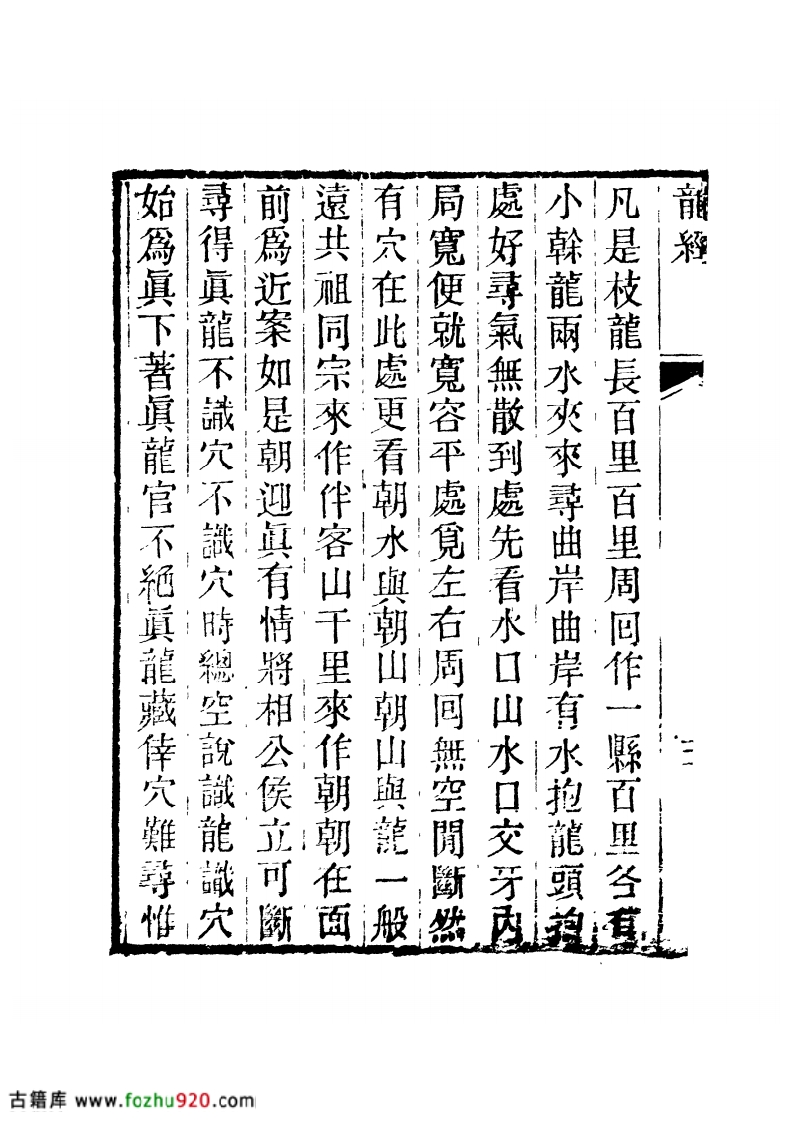 龍經
二
凡是枝龍長百里百里周回作一縣百里各有
小幹龍兩水夾來尋曲岸曲岸有水抱龍頭抱
處好尋氣無散到處先看水口山水口交牙內
局寬便就寬容平處覓左右周回無空閒斷然
有穴在此處更看朝水與朝山朝山與龍一般
遠共祖同宗來作伴客山千里來作朝朝在面
前爲近案如是朝迎眞有情將相公侯立可斷
尋得眞龍不識穴不識穴時總空說識龍識穴
始爲眞下著眞龍官不絕眞龍藏倖穴難尋惟
古籍库 www.fozhu920.com